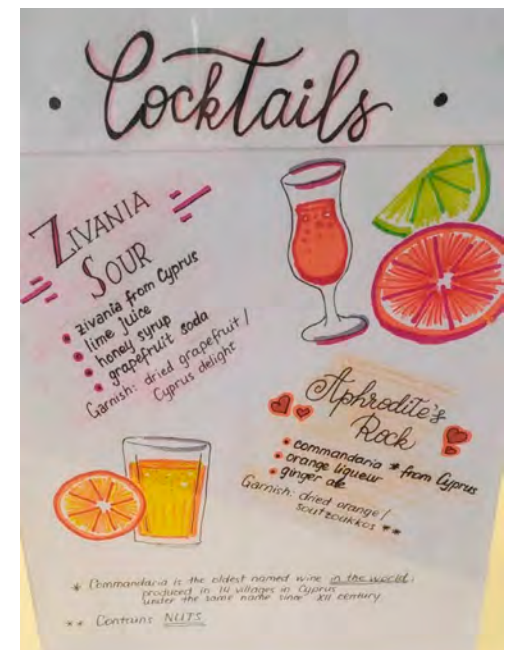 • Cocktails •
ZIVANIA
SOUR
• zivania from Cyprus
• lime juice
• honey syrup
• grapefruit soda
Garnish: dried grapefruit /
Cyprus delight
Aphrodite's
Rock
• commandaria * from Cyprus
• orange liqueur
• ginger ale
Garnish: dried orange /
soutzoukkos **
* Commandaria is the oldest named wine in the world,
produced in 14 villages in Cyprus
under the same name since XII century
** Contains NUTS